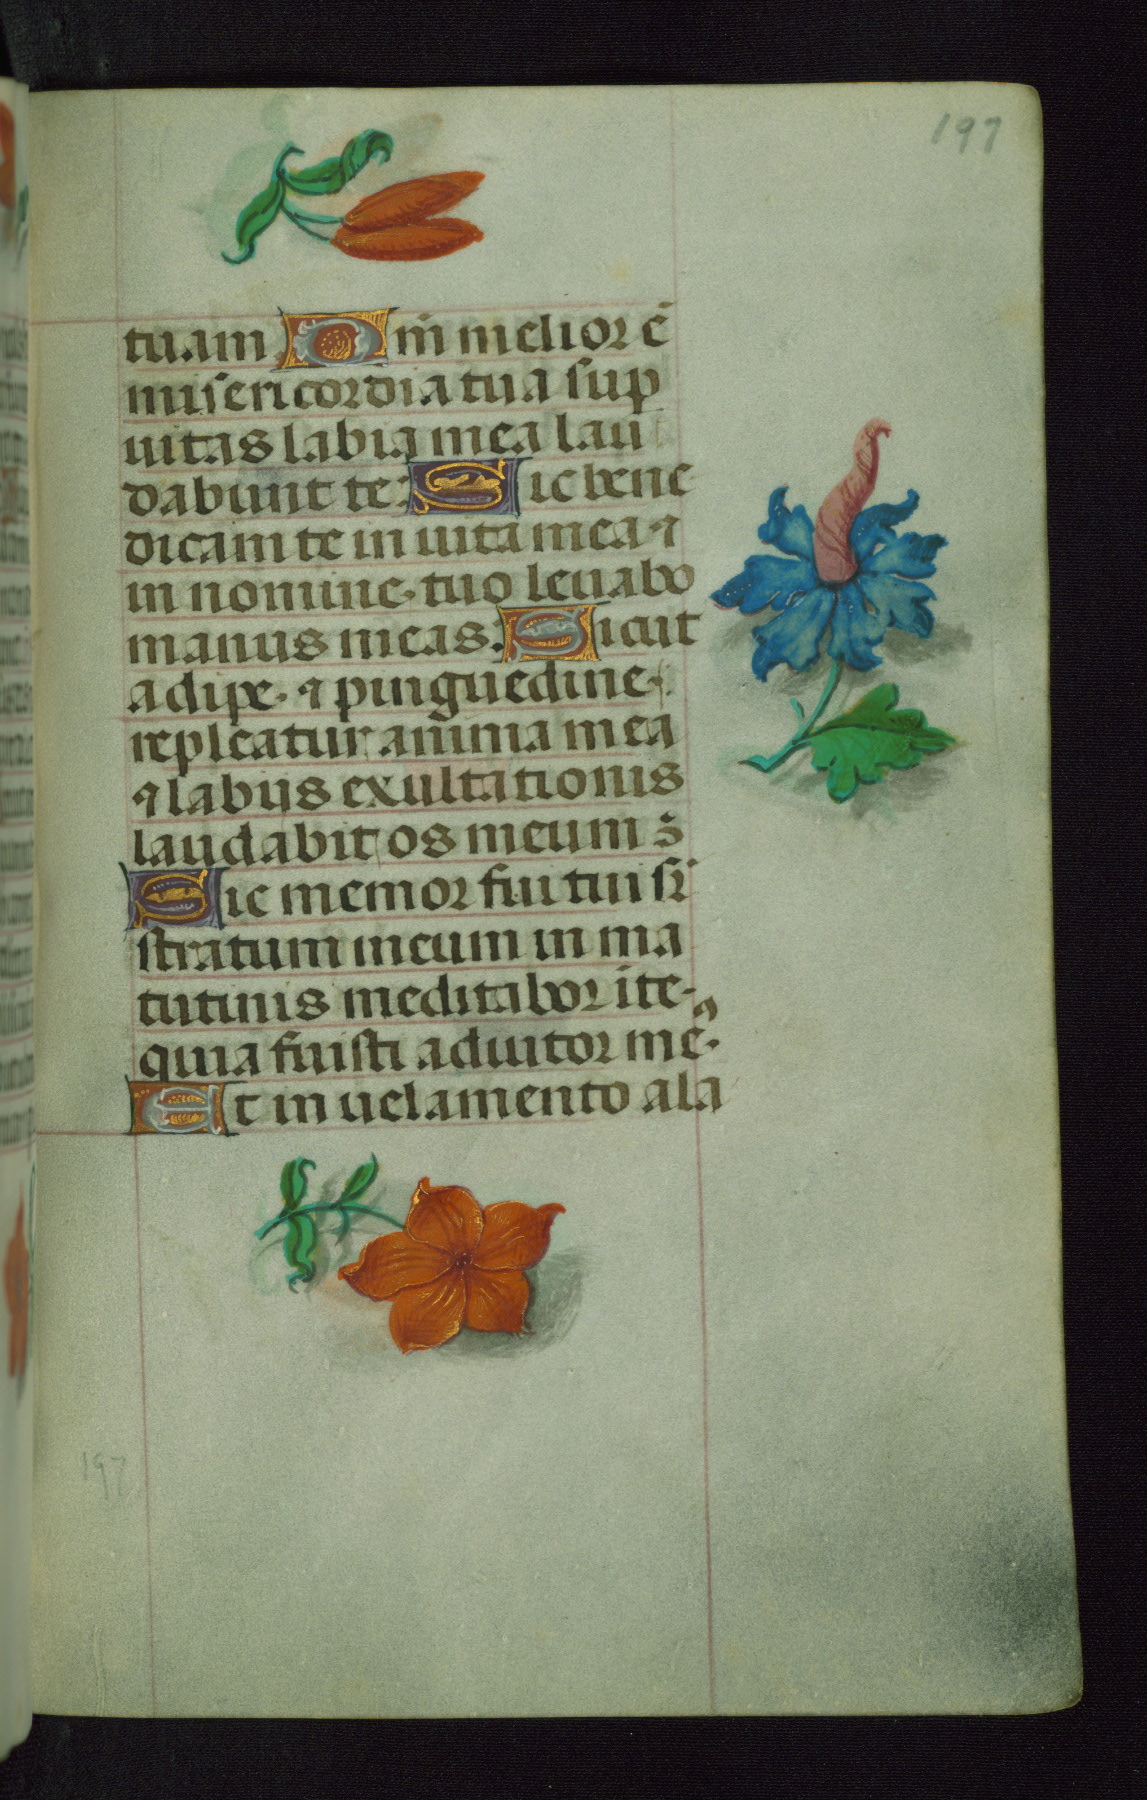 197
tuam Qm̄ melior ē
misericordia tua sup
uitas labia mea lau
dabunt te: Sic bene
dicam te in uita mea ⁊
in nomine tuo leuabo
manus meas. Sicut
adipe ⁊ pinguedine
repleatur anima mea
⁊ labijs exultationis
laudabit os meum
Sic memor fui tui sr̄
stratum meum in ma
tutinis meditabor ī te
quia fuisti adiutor me᷒
Et in uelamento ala
197